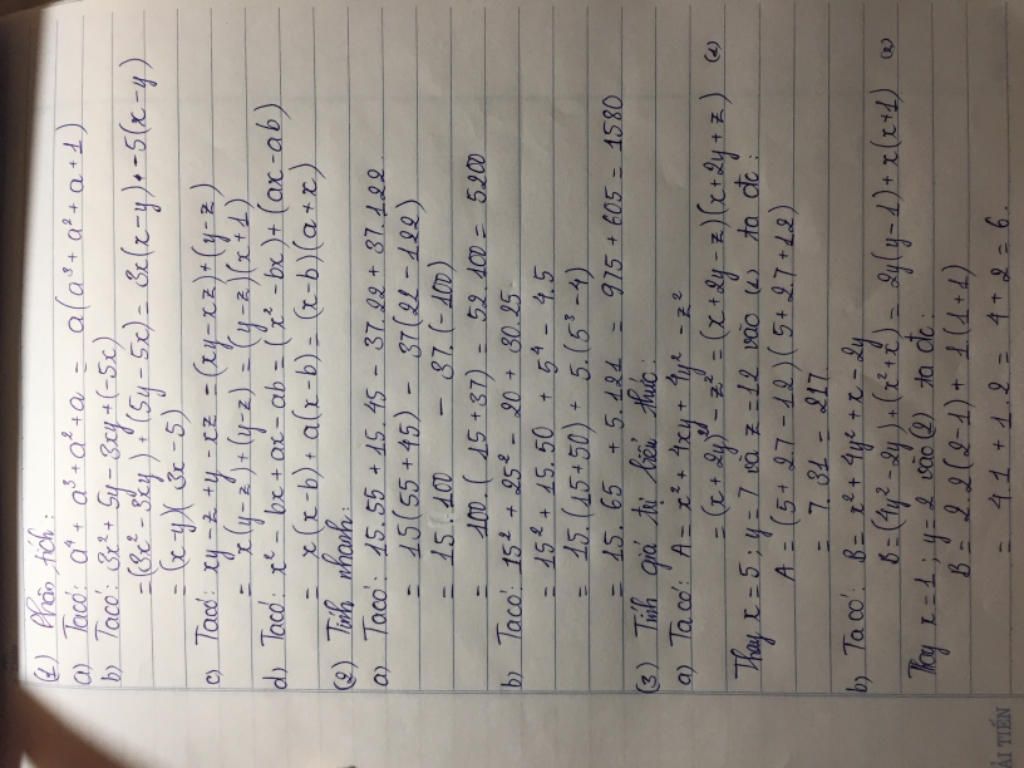 (1) Phân tích:
a) Ta có: a⁴ + a³ + a² + a = a(a³ + a² + a + 1)
b) Ta có: 3x² + 5y - 3xy + (-5x)
= (3x² - 3xy) + (5y - 5x) = 3x(x-y) + -5(x-y)
= (x-y)(3x-5)
c) Ta có: xy - z + y - xz = (xy - xz) + (y-z)
= x(y-z) + (y-z) = (y-z)(x+1)
d) Ta có: x² - bx + ax - ab = (x² - bx) + (ax - ab)
= x(x-b) + a(x-b) = (x-b)(a+x)
(2) Tính nhanh:
a) Ta có: 15.55 + 15.45 - 37.22 + 37.122
= 15(55+45) - 37(22-122)
= 15.100 - 37.(-100)
= 100.(15+37) = 52.100 = 5200
b) Ta có: 15² + 25² - 20 + 30.25
= 15² + 15.50 + 5⁴ - 4.5
= 15(15+50) + 5.(5³-4)
= 15.65 + 5.121 = 975 + 605 = 1580
(3) Tính giá trị biểu thức:
a) Ta có: A = x² + 4xy + 4y² - z²
= (x+2y)² - z² = (x+2y-z)(x+2y+z) (1)
Thay x = 5; y = 7 và z = 12 vào (1) ta đc:
A = (5+2.7-12)(5+2.7+12)
= 7.31 = 217
b) Ta có: B = x² + 4y² + x - 2y
B = (4y² - 2y) + (x² + x) = 2y(y-1) + x(x+1) (2)
Thay x = 1; y = 2 vào (2) ta đc:
B = 2.2(2-1) + 1(1+1)
= 4.1 + 1.2 = 4 + 2 = 6.
ẢI TIẾN